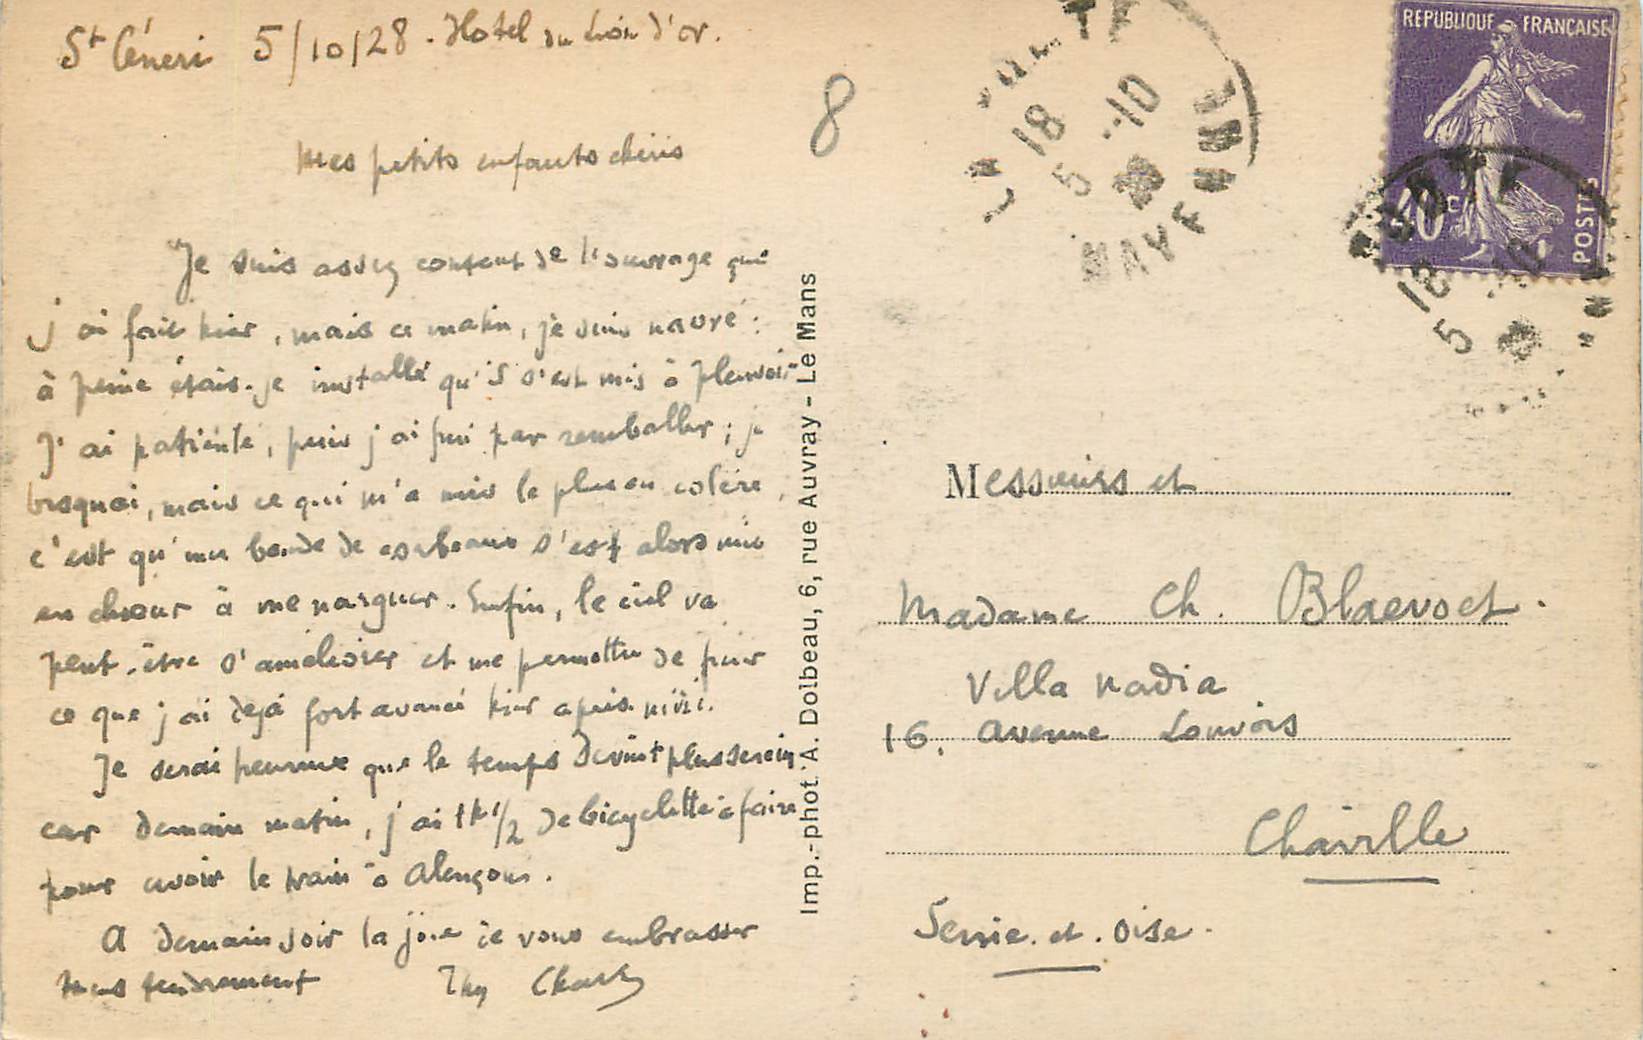 St Céneri 5/10/28. Hotel du Lion d'or.
Mes petits enfants chéris
Je suis assez content de l'ouvrage que
j'ai fait hier, mais ce matin, je suis navré :
à peine étais-je installé qu'il s'est mis à pleuvoir
J'ai patienté, puis j'ai fini par remballer ; je
bisquai, mais ce qui m'a mis le plus en colère,
c'est qu'une bande de corbeaux s'est alors mis
en chœur à me narguer. Enfin, le ciel va
peut-être s'améliorer et me permettre de finir
ce que j'ai déjà fort avancé hier après-midi.
Je serai heureux que le temps devint plus serein
car demain matin, j'ai 1h 1/2 de bicyclette à faire
pour avoir le train à Alençon.
A demain soir la joie de vous embrasser
tous tendrement Thy Charly
8
Imp.-phot. A. Dolbeau, 6, rue Auvray - Le Mans
REPUBLIQUE FRANÇAISE
40c
POSTES
18
5 -10
28
MAYENNE
18
5 -10
28
Messieurs et
Madame Ch. Blaevoet.
Villa Nadia
16. Avenue Louvois
Chaville
Seine-et-Oise.